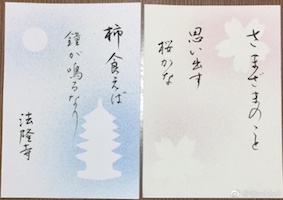 さまざまのこと
思い出す
桜かな
柿食えば
鐘が鳴るなり
法隆寺